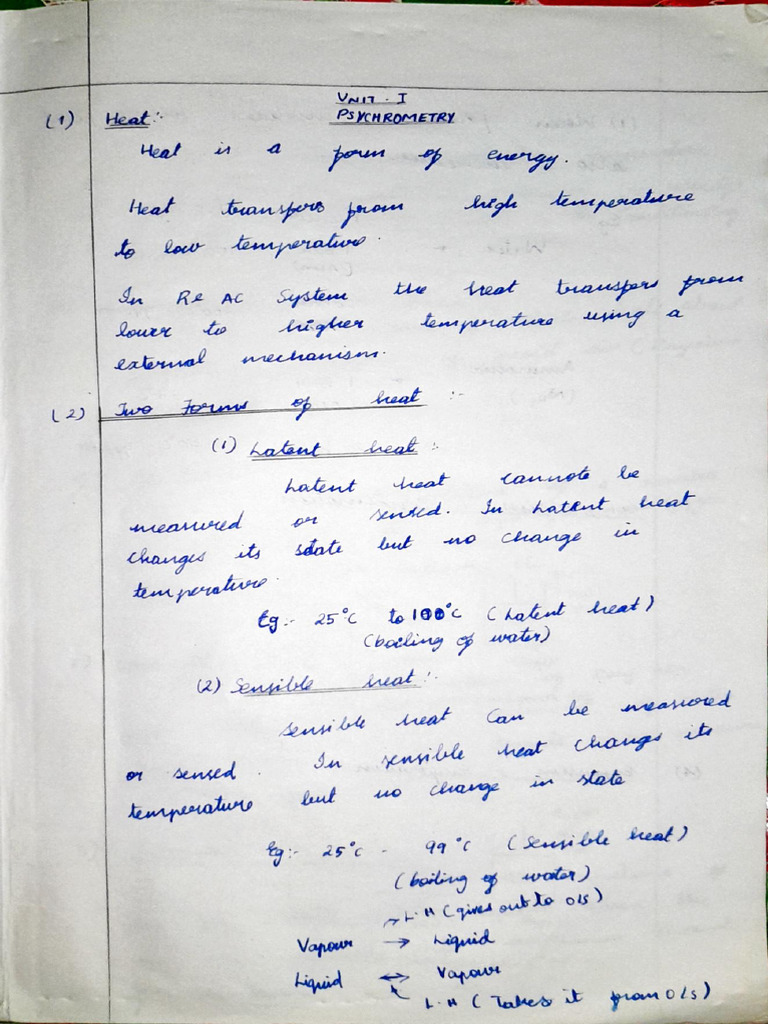 UNIT - I
PSYCHROMETRY
(1) Heat :-
Heat is a form of energy.
Heat transfers from high temperature
to low temperature.
In R & AC System the heat transfers from
lower to higher temperature using a
external mechanism.
(2) Two Forms of heat :-
(1) Latent heat :-
Latent heat cannote be
measured or sensed. In Latent heat
changes its state but no change in
temperature.
Eg :- 25°C to 100°C (Latent heat)
(boiling of water)
(2) Sensible heat :-
Sensible heat Can be measured
or sensed. In sensible heat changes its
temperature but no change in state
Eg :- 25°C - 99°C (Sensible heat)
(boiling of water)
→ L.H (gives out to O/S)
Vapour → Liquid
Liquid ↔ Vapour
L.H (Takes it from O/S)